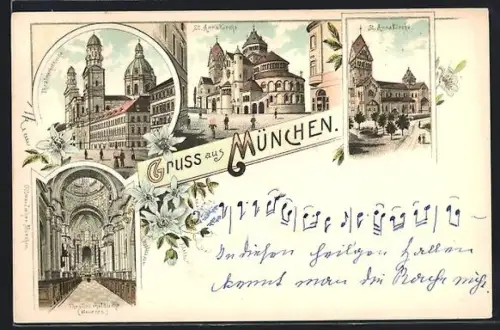 Theatinerkirche
St. Annakirche.
St. Annakirche.
Gruss aus München.
Theatinerkirche
(Inneres)
In diesen heilgen Hallen
kennt man die Rache nicht.